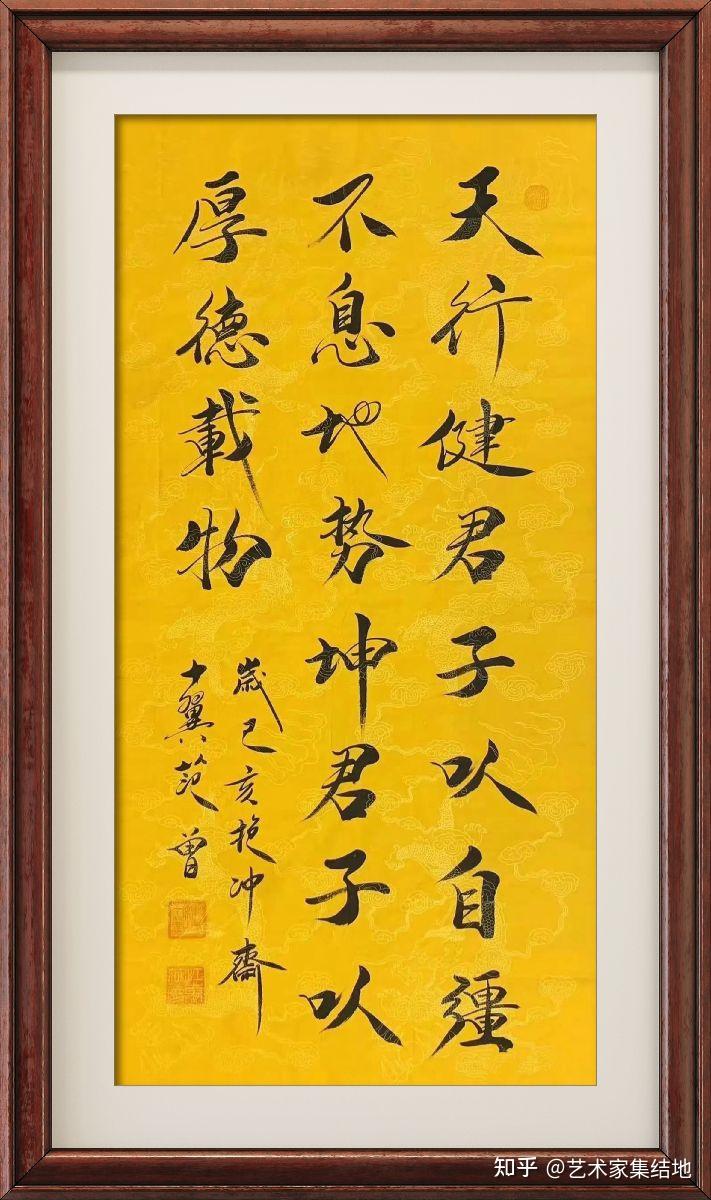 天行健君子以自疆
不息地势坤君子以
厚德載物
歳己亥抱冲齋
十翼范曾
知乎 @艺术家集结地